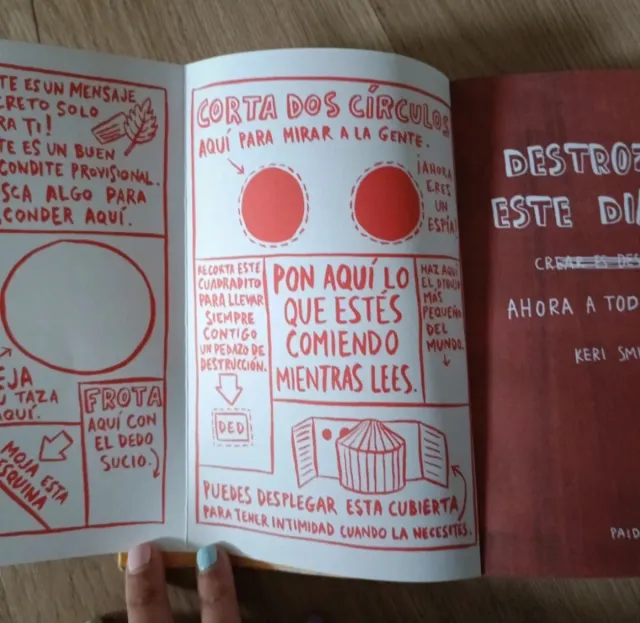 TE ES UN MENSAJE
CRETO SOLO
RA TI!
TE ES UN BUEN
CONDITE PROVISIONAL.
SCA ALGO PARA
CONDER AQUÍ.
EJA
U TAZA
AQUÍ.
MOJA ESTA
ESQUINA
FROTA
AQUÍ CON
EL DEDO
SUCIO.
CORTA DOS CÍRCULOS
AQUÍ PARA MIRAR A LA GENTE.
¡AHORA
ERES
UN
ESPÍA!
RECORTA ESTE
CUADRADITO
PARA LLEVAR
SIEMPRE
CONTIGO
UN PEDAZO DE
DESTRUCCIÓN.
DED
PON AQUÍ LO
QUE ESTÉS
COMIENDO
MIENTRAS LEES.
HAZ AQUÍ
EL DIBUJO
MÁS
PEQUEÑO
DEL
MUNDO.
PUEDES DESPLEGAR ESTA CUBIERTA
PARA TENER INTIMIDAD CUANDO LA NECESITES.
DESTROZ
ESTE DIA
CREAR ES DES
AHORA A TOD
KERI SMI
PAID